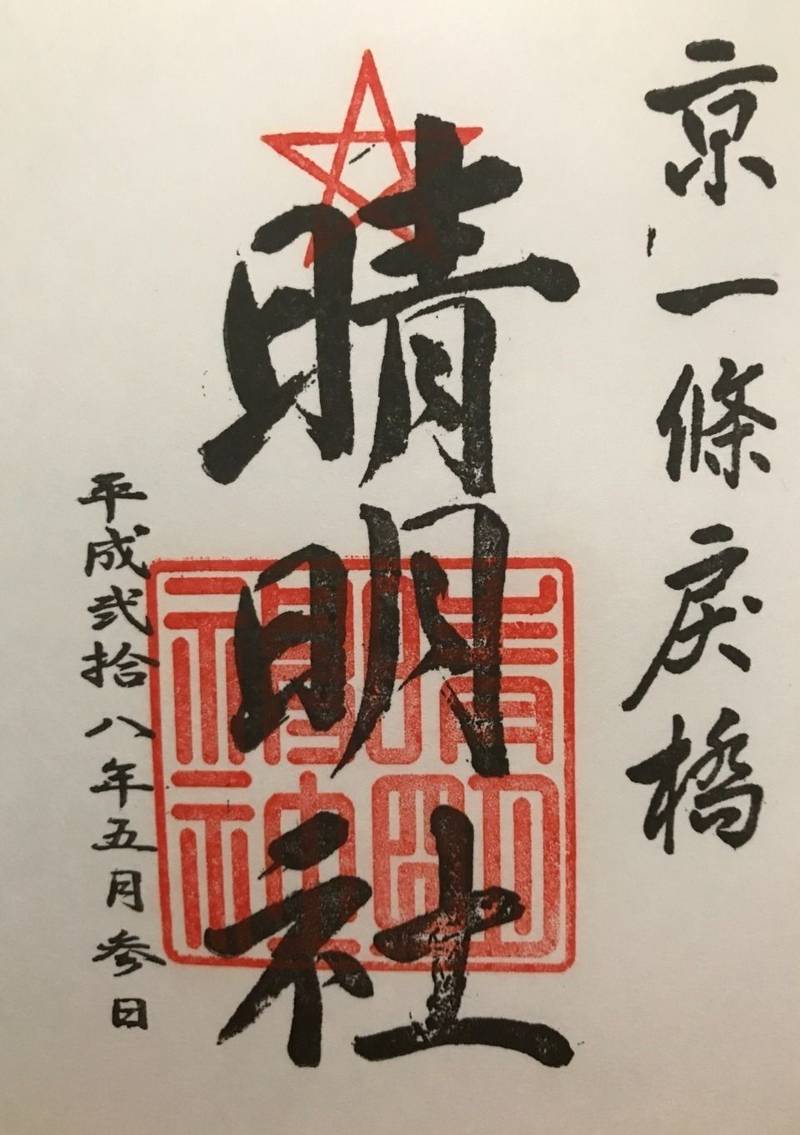 京一條戻橋
晴明社
晴明神社
平成弐拾八年五月参日